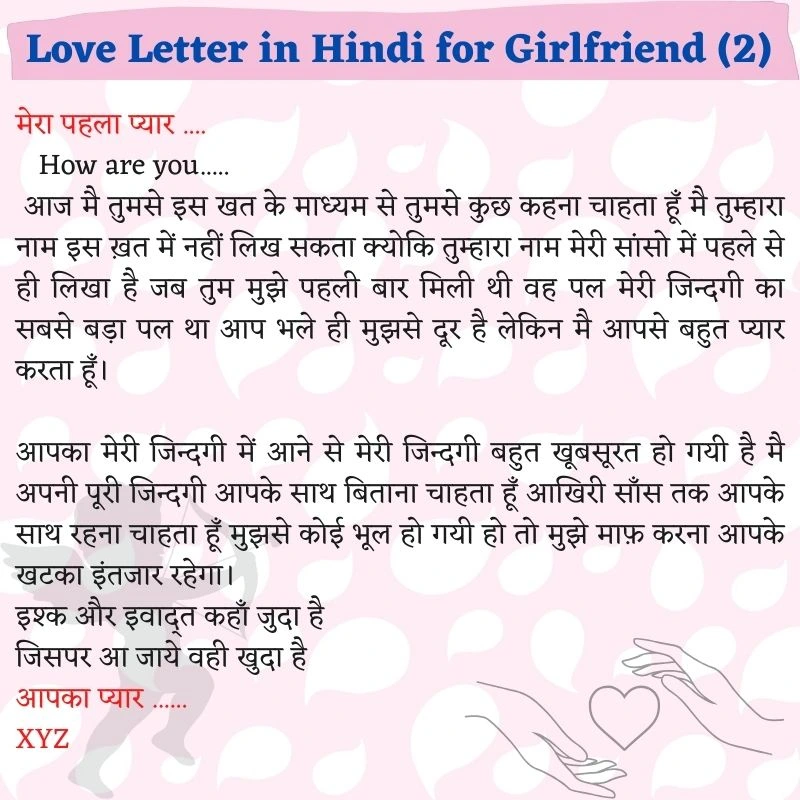 Love Letter in Hindi for Girlfriend (2)
मेरा पहला प्यार ....
How are you.....
आज मै तुमसे इस खत के माध्यम से तुमसे कुछ कहना चाहता हूँ मै तुम्हारा
नाम इस ख़त में नहीं लिख सकता क्योकि तुम्हारा नाम मेरी सांसो में पहले से
ही लिखा है जब तुम मुझे पहली बार मिली थी वह पल मेरी जिन्दगी का
सबसे बड़ा पल था आप भले ही मुझसे दूर है लेकिन मै आपसे बहुत प्यार
करता हूँ।
आपका मेरी जिन्दगी में आने से मेरी जिन्दगी बहुत खूबसूरत हो गयी है मै
अपनी पूरी जिन्दगी आपके साथ बिताना चाहता हूँ आखिरी साँस तक आपके
साथ रहना चाहता हूँ मुझसे कोई भूल हो गयी हो तो मुझे माफ़ करना आपके
खटका इंतजार रहेगा।
इश्क और इवाद्त कहाँ जुदा है
जिसपर आ जाये वही खुदा है
आपका प्यार ......
XYZ